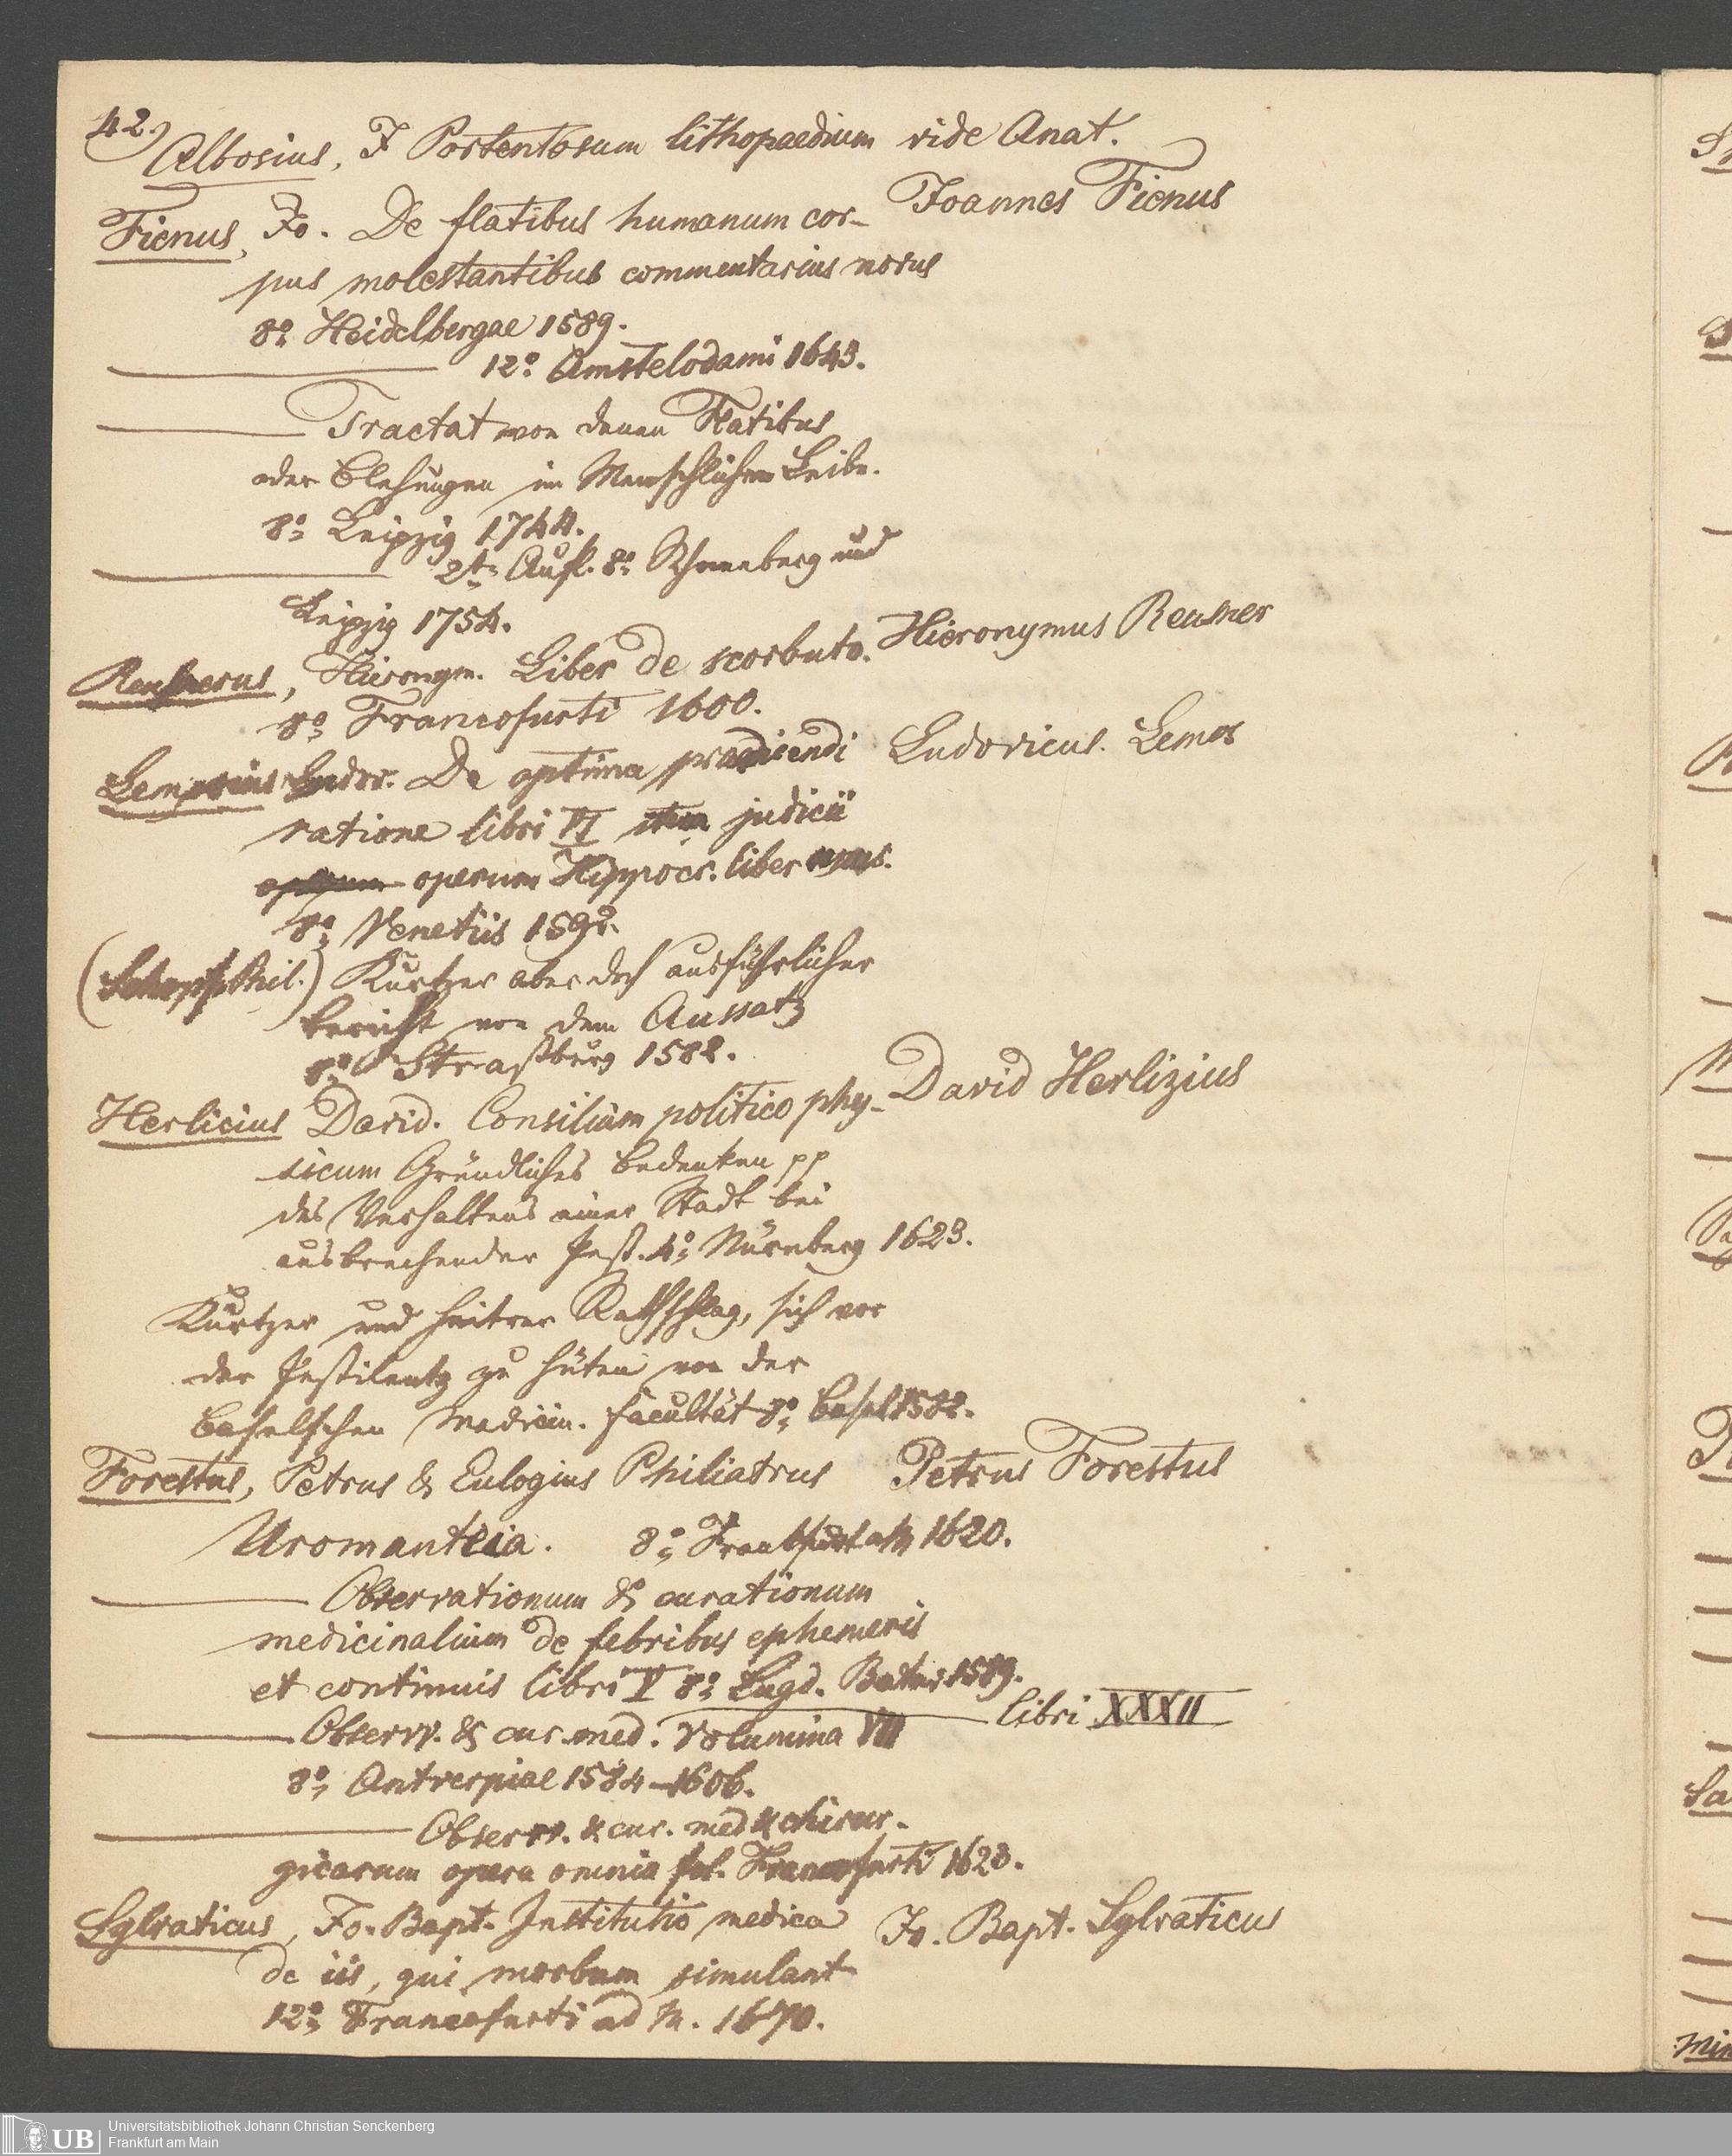 42,
Albosius, J Portentosum lithopaedium vide Anat.
Fienus, Jo. De flatibus humanum cor- Joannes Fienus
pus molestantibus commentarius novus
8º Heidelbergae 1589.
12º Amstelodami 1643.
Tractat von denen Flatibus
oder Blehungen im Menschlichen Leibe.
8º Leipzig 1744.
2te Aufl. 8º Schneeberg und
Leipzig 1754.
Reusnerus, Hieronym. Liber de scorbuto. Hieronymus Reusner
8º Francofurti 1600.
Lemosius Ludov. De optima praedicendi Ludovicus Lemos
ratione libri VI item judicii
operum Hippocr. liber unus.
8º Venetiis 1592.
(Schopf Phil.) Kurtzer aber doch ausführlicher
bericht von dem Aussatz
8º Straßburg 1582.
Herlicius David. Consilium politico phy- David Herlizius
sicum Gründliches bedenken pp
des Verhaltens einer Stadt bei
ausbrechender Pest. 4º Nürnberg 1623.
Kurtzer und Rathschlag, sich vor
der Pestilentz zu hüten von der
baselschen medicin. facultät 8º Basel 1582.
Forestus, Petrus & Eulogius Philiatrus Petrus Forestus
Uromanteia. 8º Frankfurt a/M 1620.
Observationum & curationum
medicinalium de febribus ephemeris
et continuis libri V 8º Lugd. Batav 1589.
Observv. & cur. med. volumina VII libri XXXII
8º Antverpiae 1584-1606.
Observv. & cur. med & chirur-
gicarum opera omnia fol. Francofurti 1623.
Sylvaticus, Jo. Bapt. Institutio medica Jo. Bapt. Sylvaticus
de iis, qui morbum simulant
12º Francofurti ad M. 1670.
UB
Universitätsbibliothek Johann Christian Senckenberg
Frankfurt am Main